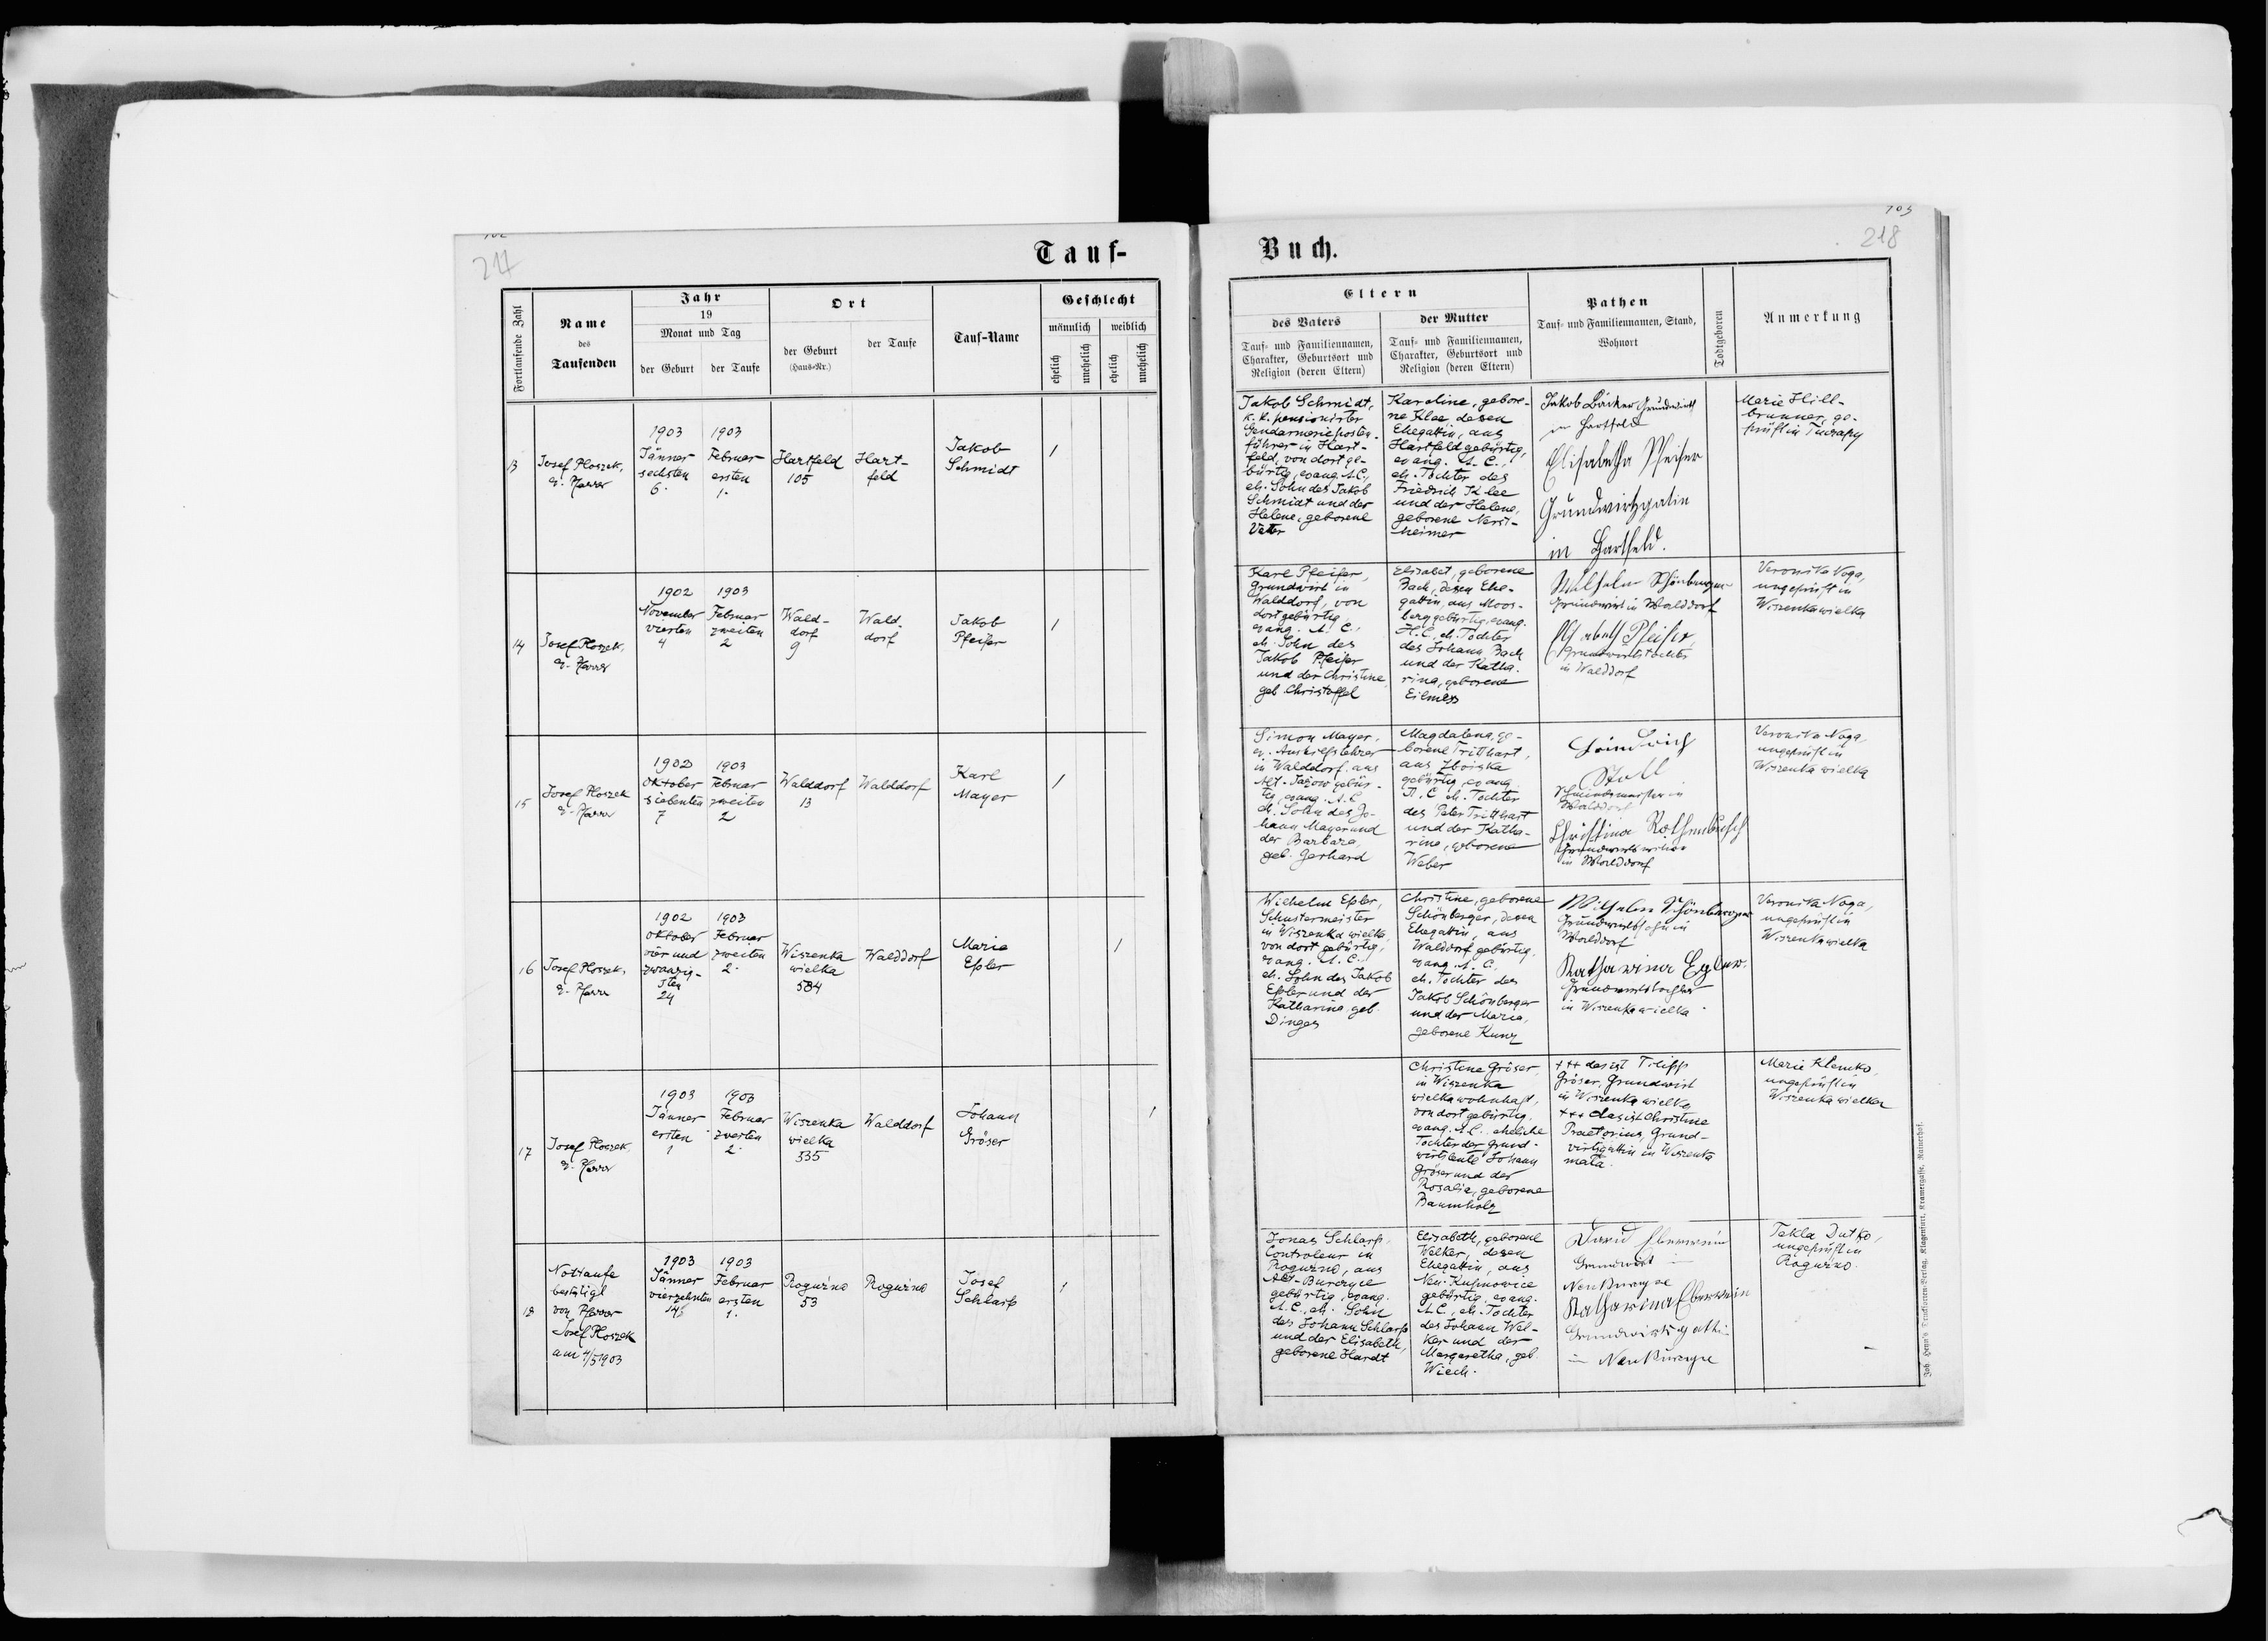 217
Tauf-
Fortlaufende Zahl
Name
des
Taufenden
Jahr
19
Monat und Tag
der Geburt
der Taufe
Ort
der Geburt
(Haus-Nr.)
der Taufe
Tauf-Name
Geschlecht
männlich
weiblich
ehelich
unehelich
ehelich
unehelich
13
Josef Ploszek,
ev. Pfarrer
1903
Jänner
sechsten
6.
1903
Februar
ersten
1.
Hartfeld
105
Hart-
feld
Jakob
Schmidt
1
14
Josef Ploszek,
ev. Pfarrer
1902
November
vierten
4
1903
Februar
zweiten
2
Wald-
dorf
9
Wald-
dorf
Jakob
Pfeifer
1
15
Josef Ploszek
ev. Pfarrer
1902
Oktober
siebenten
7
1903
Februar
zweiten
2
Walddorf
13
Walddorf
Karl
Mayer
1
16
Josef Ploszek,
ev. Pfarrer
1902
Oktober
vier und
zwanzig-
sten
24
1903
Februar
zweiten
2.
Wiszenka
wielka
584
Walddorf
Maria
Eßler
1
17
Josef Ploszek,
ev. Pfarrer
1903
Jänner
ersten
1
1903
Februar
zweiten
2.
Wiszenka
wielka
535
Walddorf
Johann
Gröser
1
18
Nottaufe
bestätigt
von Pfarrer
Josef Ploszek
am 4/5 1903
1903
Jänner
vierzehnten
14.
1903
Februar
ersten
1.
Roguźno
53
Roguźno
Josef
Schlarp
1
103
218
Buch.
Eltern
des Vaters
Tauf- und Familiennamen,
Charakter, Geburtsort und
Religion (deren Eltern)
der Mutter
Tauf- und Familiennamen,
Charakter, Geburtsort und
Religion (deren Eltern)
Pathen
Tauf- und Familiennamen, Stand,
Wohnort
Todtgeboren
Anmerkung
Jakob Schmidt,
k. k. pensionirter
Gendarmerieposten-
führer in Hart-
feld, von dort ge-
bürtig, evang. A.C.,
eh. Sohn des Jakob
Schmidt und der
Helene, geborene
Vetter
Karoline, gebore-
ne Klee, dessen
Ehegattin, aus
Hartfeld gebürtig,
evang. A. C.,
eh. Tochter des
Friedrich Klee
und der Helene,
geborene
Jakob Bäcker Grundwirth
in Hartfeld
Elisabetha Pfeifer
Grundwirthsgatin
in Hartfeld.
Marie Hill-
brunner, ge-
prüft in
Karl Pfeifer,
Grundwirt in
Walddorf, von
dort gebürtig,
evang. A. C.,
eh. Sohn des
Jakob Pfeifer
und der Christine,
geb. Christoffel
Elisabet, geborene
Bach, dessen Ehe-
gattin, aus Moos-
berg gebürtig, evang.
H. C., eh. Tochter
des Johann Bach
und der Katha-
rina, geborene
Wilhelm Schönberger
Grundwirt in Walddorf
Elisabeth Pfeifer
Grundwirtstochter
in Walddorf
Veronika Noga,
ungeprüft in
Wiszenka wielka
Simon Mayer,
ev. Aushilfslehrer
in Walddorf, aus
Alt-Jażow gebür-
tig, evang. A.C.
eh. Sohn des Jo-
hann Mayer und
der Barbara,
geb. Gerhard
Magdalena, ge-
borene Tritthart,
aus Zboiska
gebürtig, evang.
A. C. eh. Tochter
des Peter Tritthart
und der Katha-
rina, geborene
Weber
Heinrich
Stoll
in
Walddorf
Christina Rothenbusch
in Walddorf
Veronika Noga,
ungeprüft in
Wiszenka wielka
Wilhelm Eßler,
Schustermeister
in Wiszenka wielka,
von dort gebürtig,
evang. A. C.,
eh. Sohn des Jakob
Eßler und der
Katharina, geb.
Dinges
Christine, geborene
Schönberger, dessen
Ehegattin, aus
Walddorf gebürtig,
evang. A. C.,
eh. Tochter des
Jakob Schönberger
und der Maria,
geborene Kunz
Wilhelm Schönberger
Grundwirtssohn in
Walddorf
Katharina Egler.
Grundwirtstochter
in Wiszenka wielka
Veronika Noga,
ungeprüft in
Wiszenka wielka
Christine Gröser,
in Wiszenka
wielka wohnhaft,
von dort gebürtig,
evang. A.C. eheliche
Tochter der Grund-
wirtsleute Johann
Gröser und der
Rosalia, geborene
Baumholz
+++ das ist Filipp
Gröser, Grundwirt
in Wiszenka wielka
+++ das ist Christine
Praetorius, Grund-
wirtsgattin in Wiszenka
mała.
Marie Klemko,
ungeprüft in
Wiszenka wielka
Jonas Schlarp,
Controleur in
Roguźno, aus
Alt-Burczyce
gebürtig, evang.
A. C., eh. Sohn
des Johann Schlarp
und der Elisabeth,
geborene Hardt
Elisabeth, geborene
Welker, dessen
Ehegattin, aus
Neu-Kupnowice
gebürtig, evang.
A. C., eh. Tochter
des Johann Wel-
ker und der
Margaretha, geb.
Wiech.
David Eberwein
Grundwirt in
Neu Burczyce
Katharina Eberwein
Grundwirtsgattin
in Neu Burczyce
Tekla Dutko,
ungeprüft in
Roguźno.
Joh. Heyn's Drucksorten-Verlag, Klagenfurt, Kramergasse, Rainerhof.